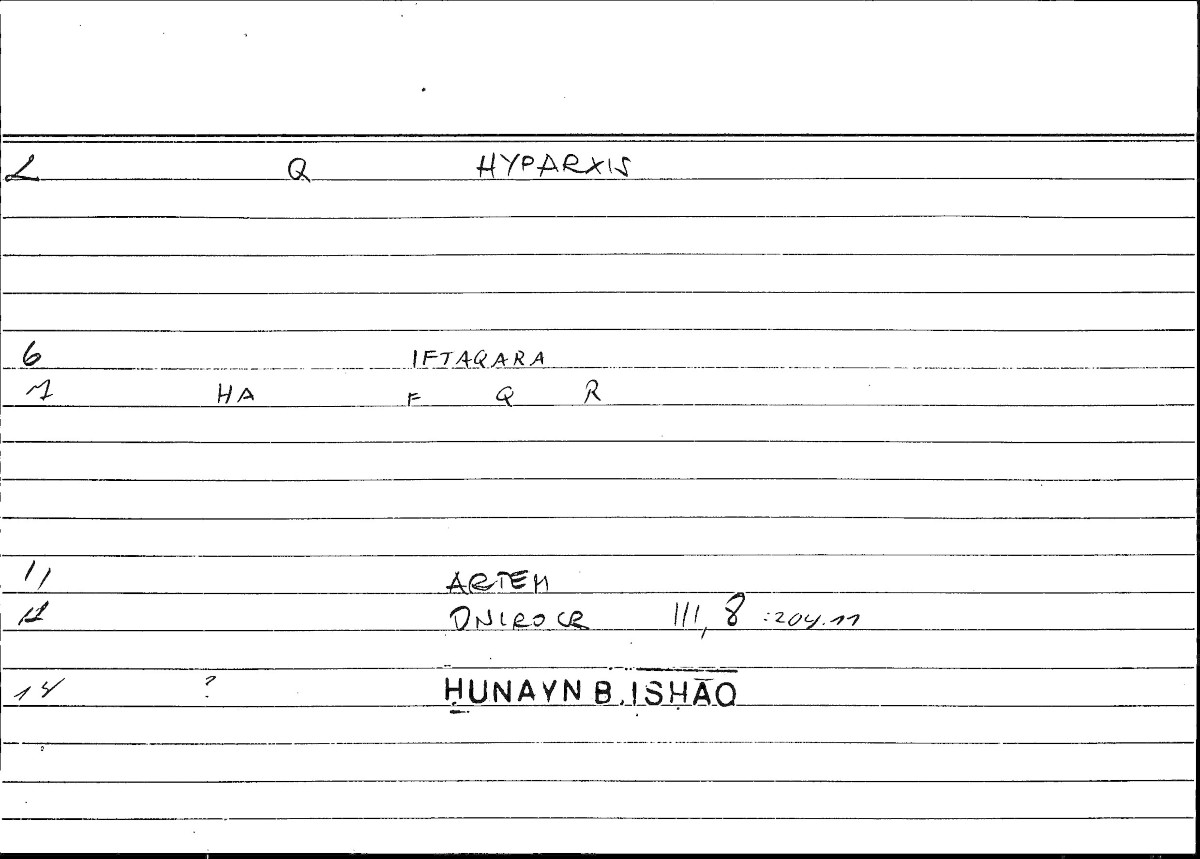 2 Q HYPARXIS
6 IFTAQARA
7 HA F Q R
11 ARTEM
12 ONIROCR III, 8 :204.11
14 ? ḤUNAYN B. ISḤĀQ